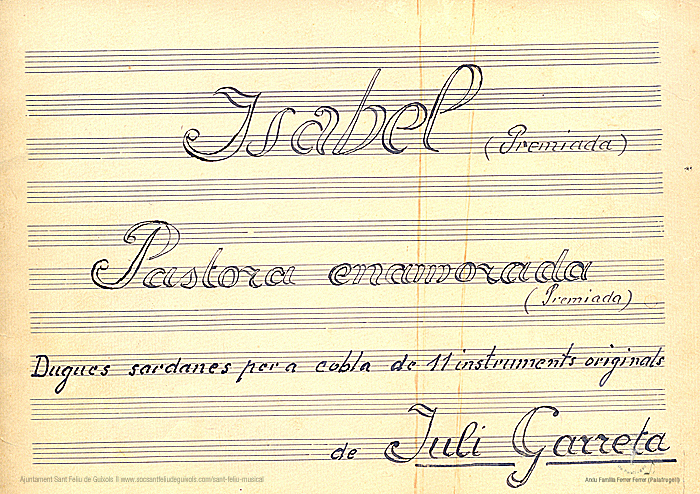 Isabel (Premiada)
Pastora enamorada
(Premiada)
Dugues sardanes per a cobla de 11 instruments originals
de Juli Garreta
Ajuntament Sant Feliu de Guíxols || www.socsantfeliudeguixols.com/sant-feliu-musical
Arxiu Família Ferrer Ferrer (Palafrugell)